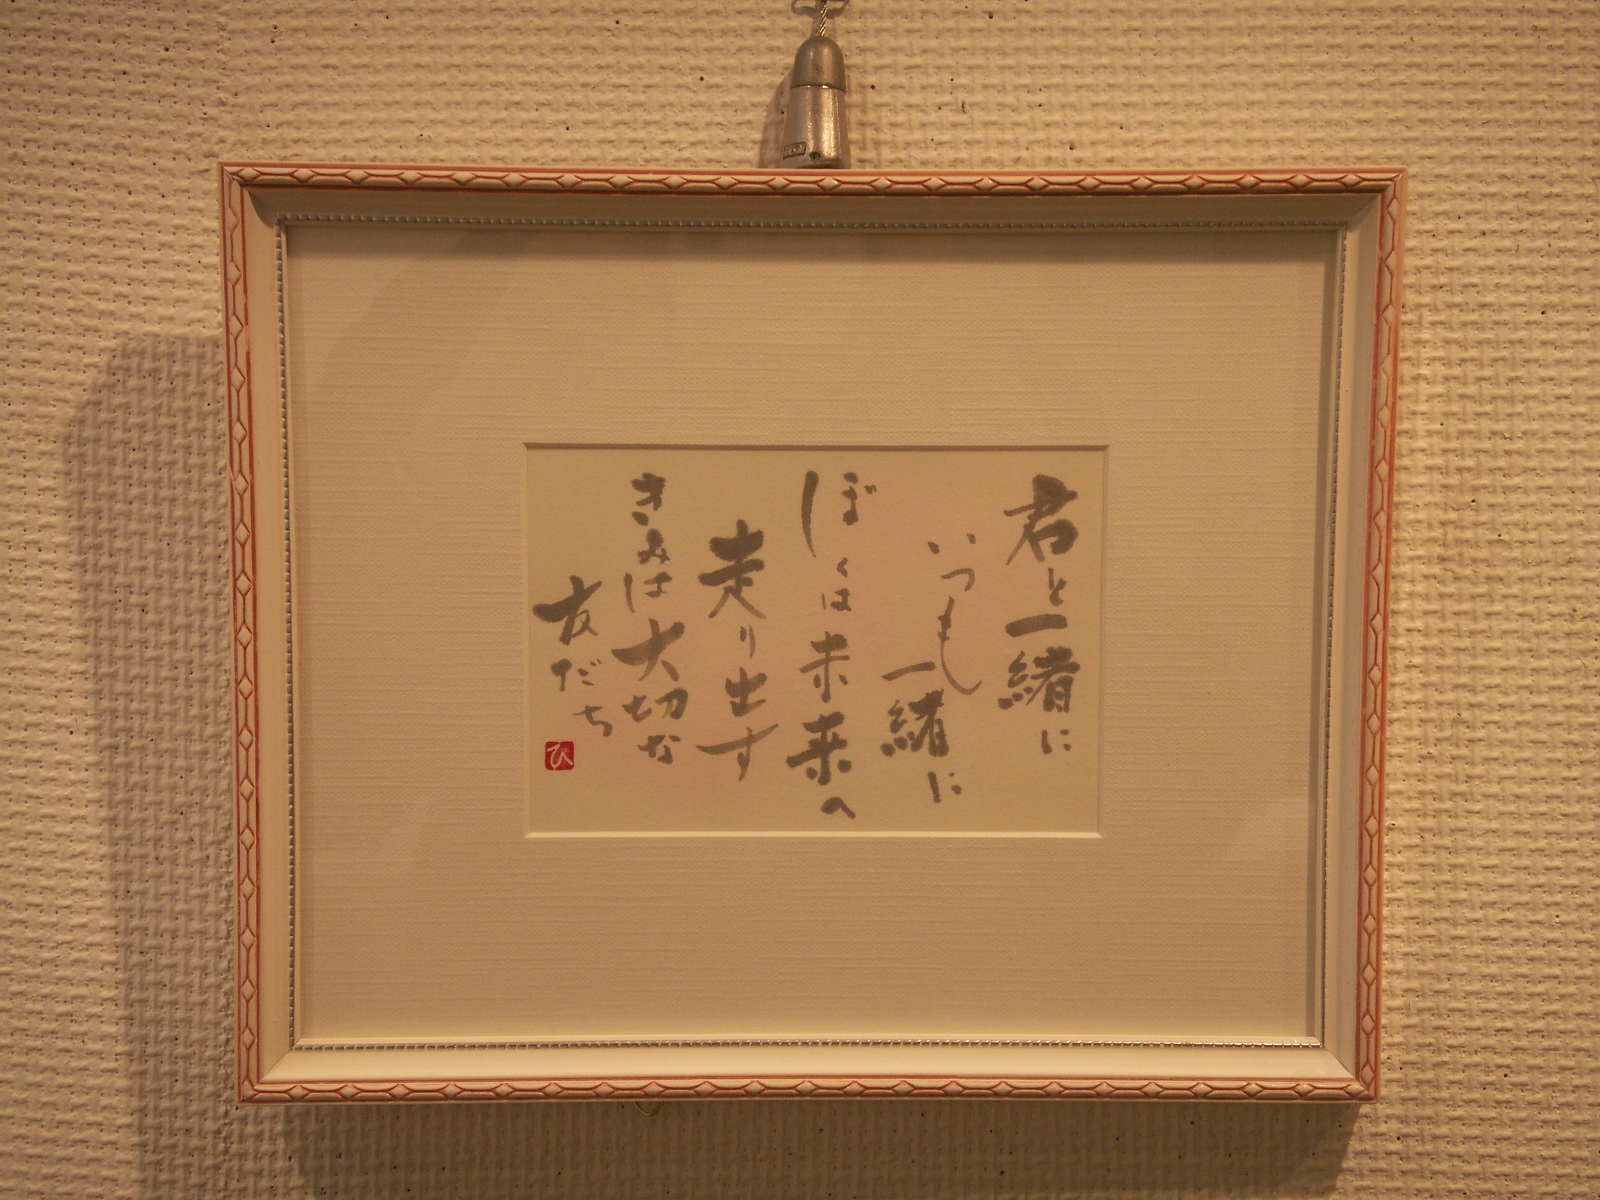 君と一緒に
いつも
一緒に
ぼくは未来へ
走り出す
きみは大切な
友だち
ひ